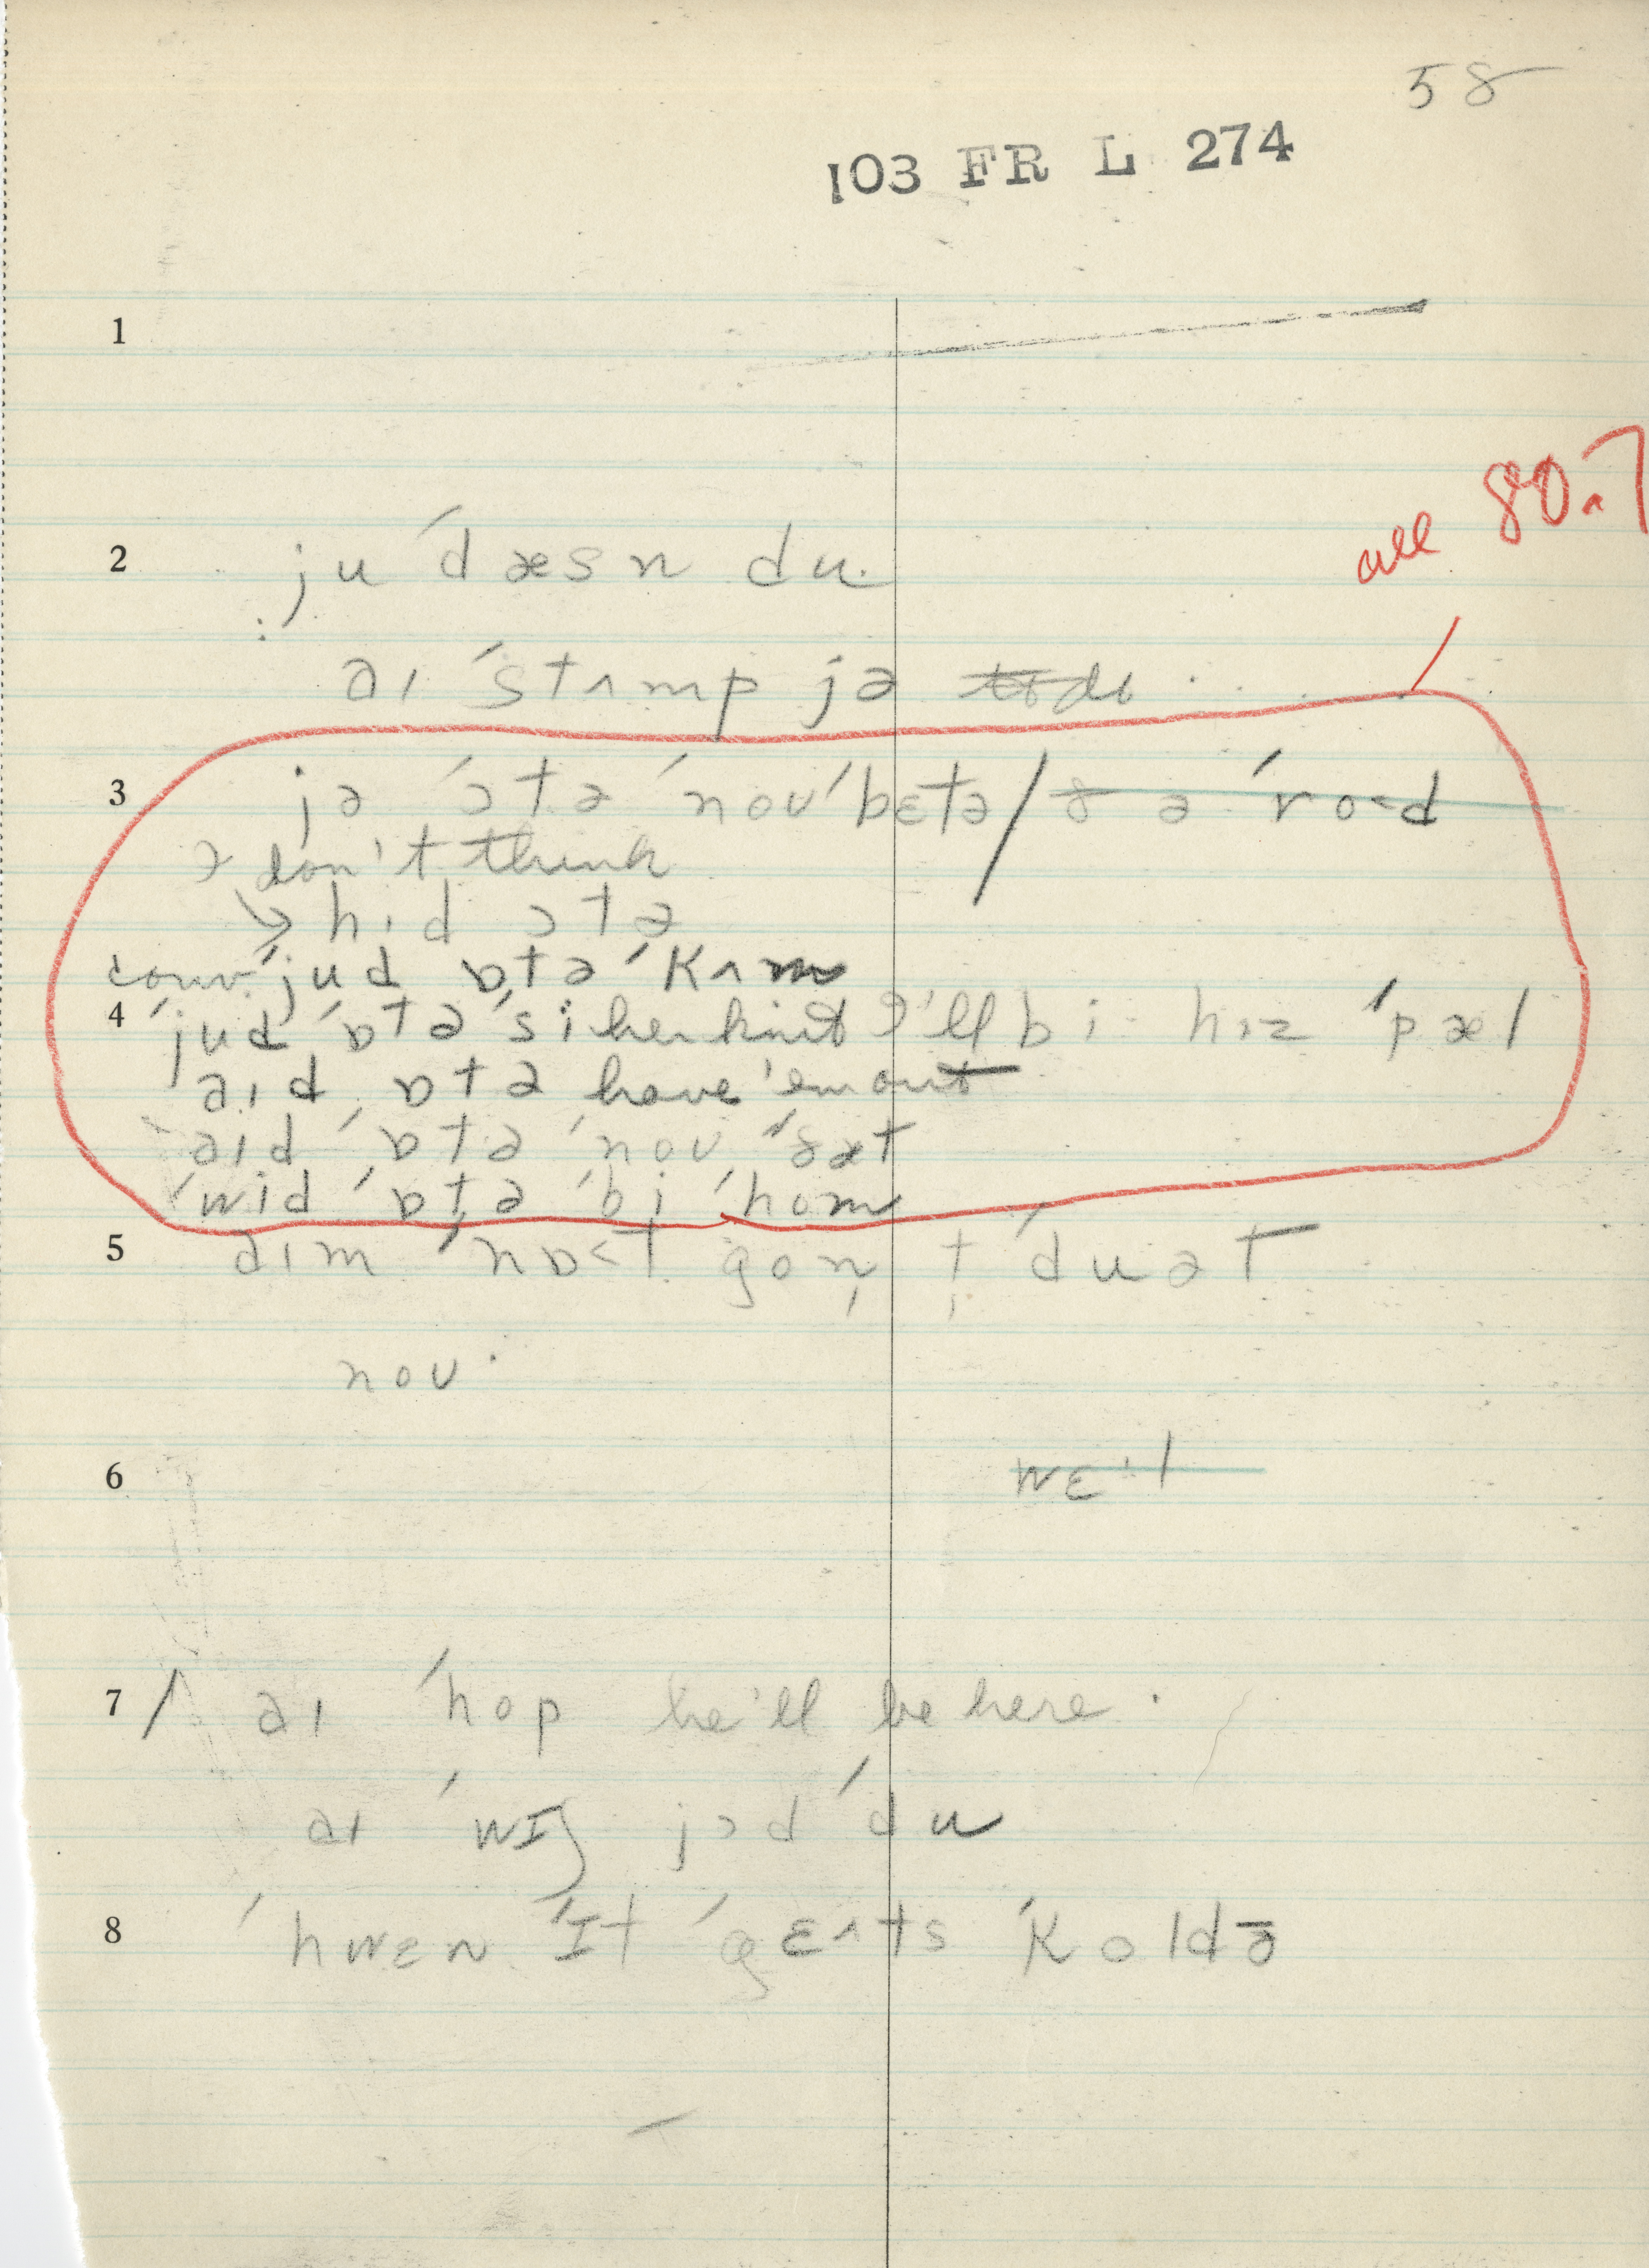 58
103 FR L 274
1
all 80.7
2 ju ˈdæsn du.
aɪ ˈstʌmp jə
3 jə ˈɔtə ˈnoʊ ˈbɛtə / ð ə ˈro<d
I don't think
→ hid ɔtə
conv. ˈjud ɒtə ˈkʌm
4 ˈjud ˈɒtə ˈsi her knit I'll bi hɪz ˈpæl
aɪd ɒtə have 'em out
aɪd ˈɒtə ˈnoʊ ˈðæt
ˈwid ˈɒtə ˈbi ˈhom
5 aɪm ˈnɒ<t gon̩ t̩ ˈduət
noʊ.
6 wɛ·l
7 / aɪ ˈhop he'll be here.
aɪ ˈwɪʃ jɔd ˈdu
8 ˈhwɛn ˈɪt ˈgɛʌts ˈkoldə̄